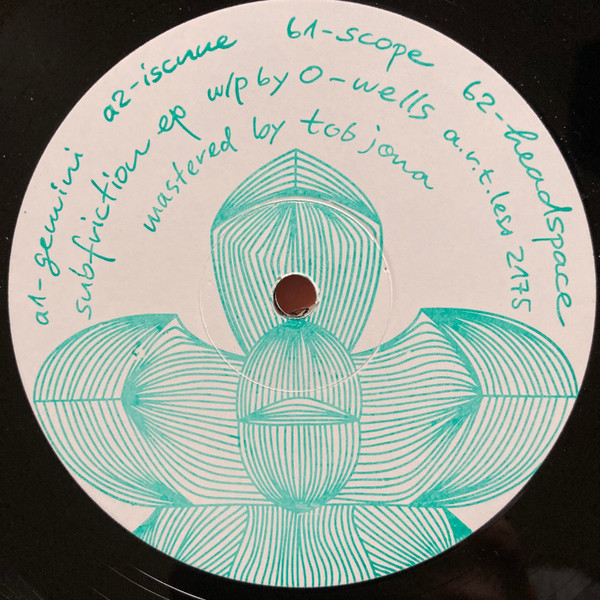 a1-gemini a2-iscnue b1-scope b2-headspace
subfriction ep w/p by O-wells a.r.t.less 2175
mastered by tob jona